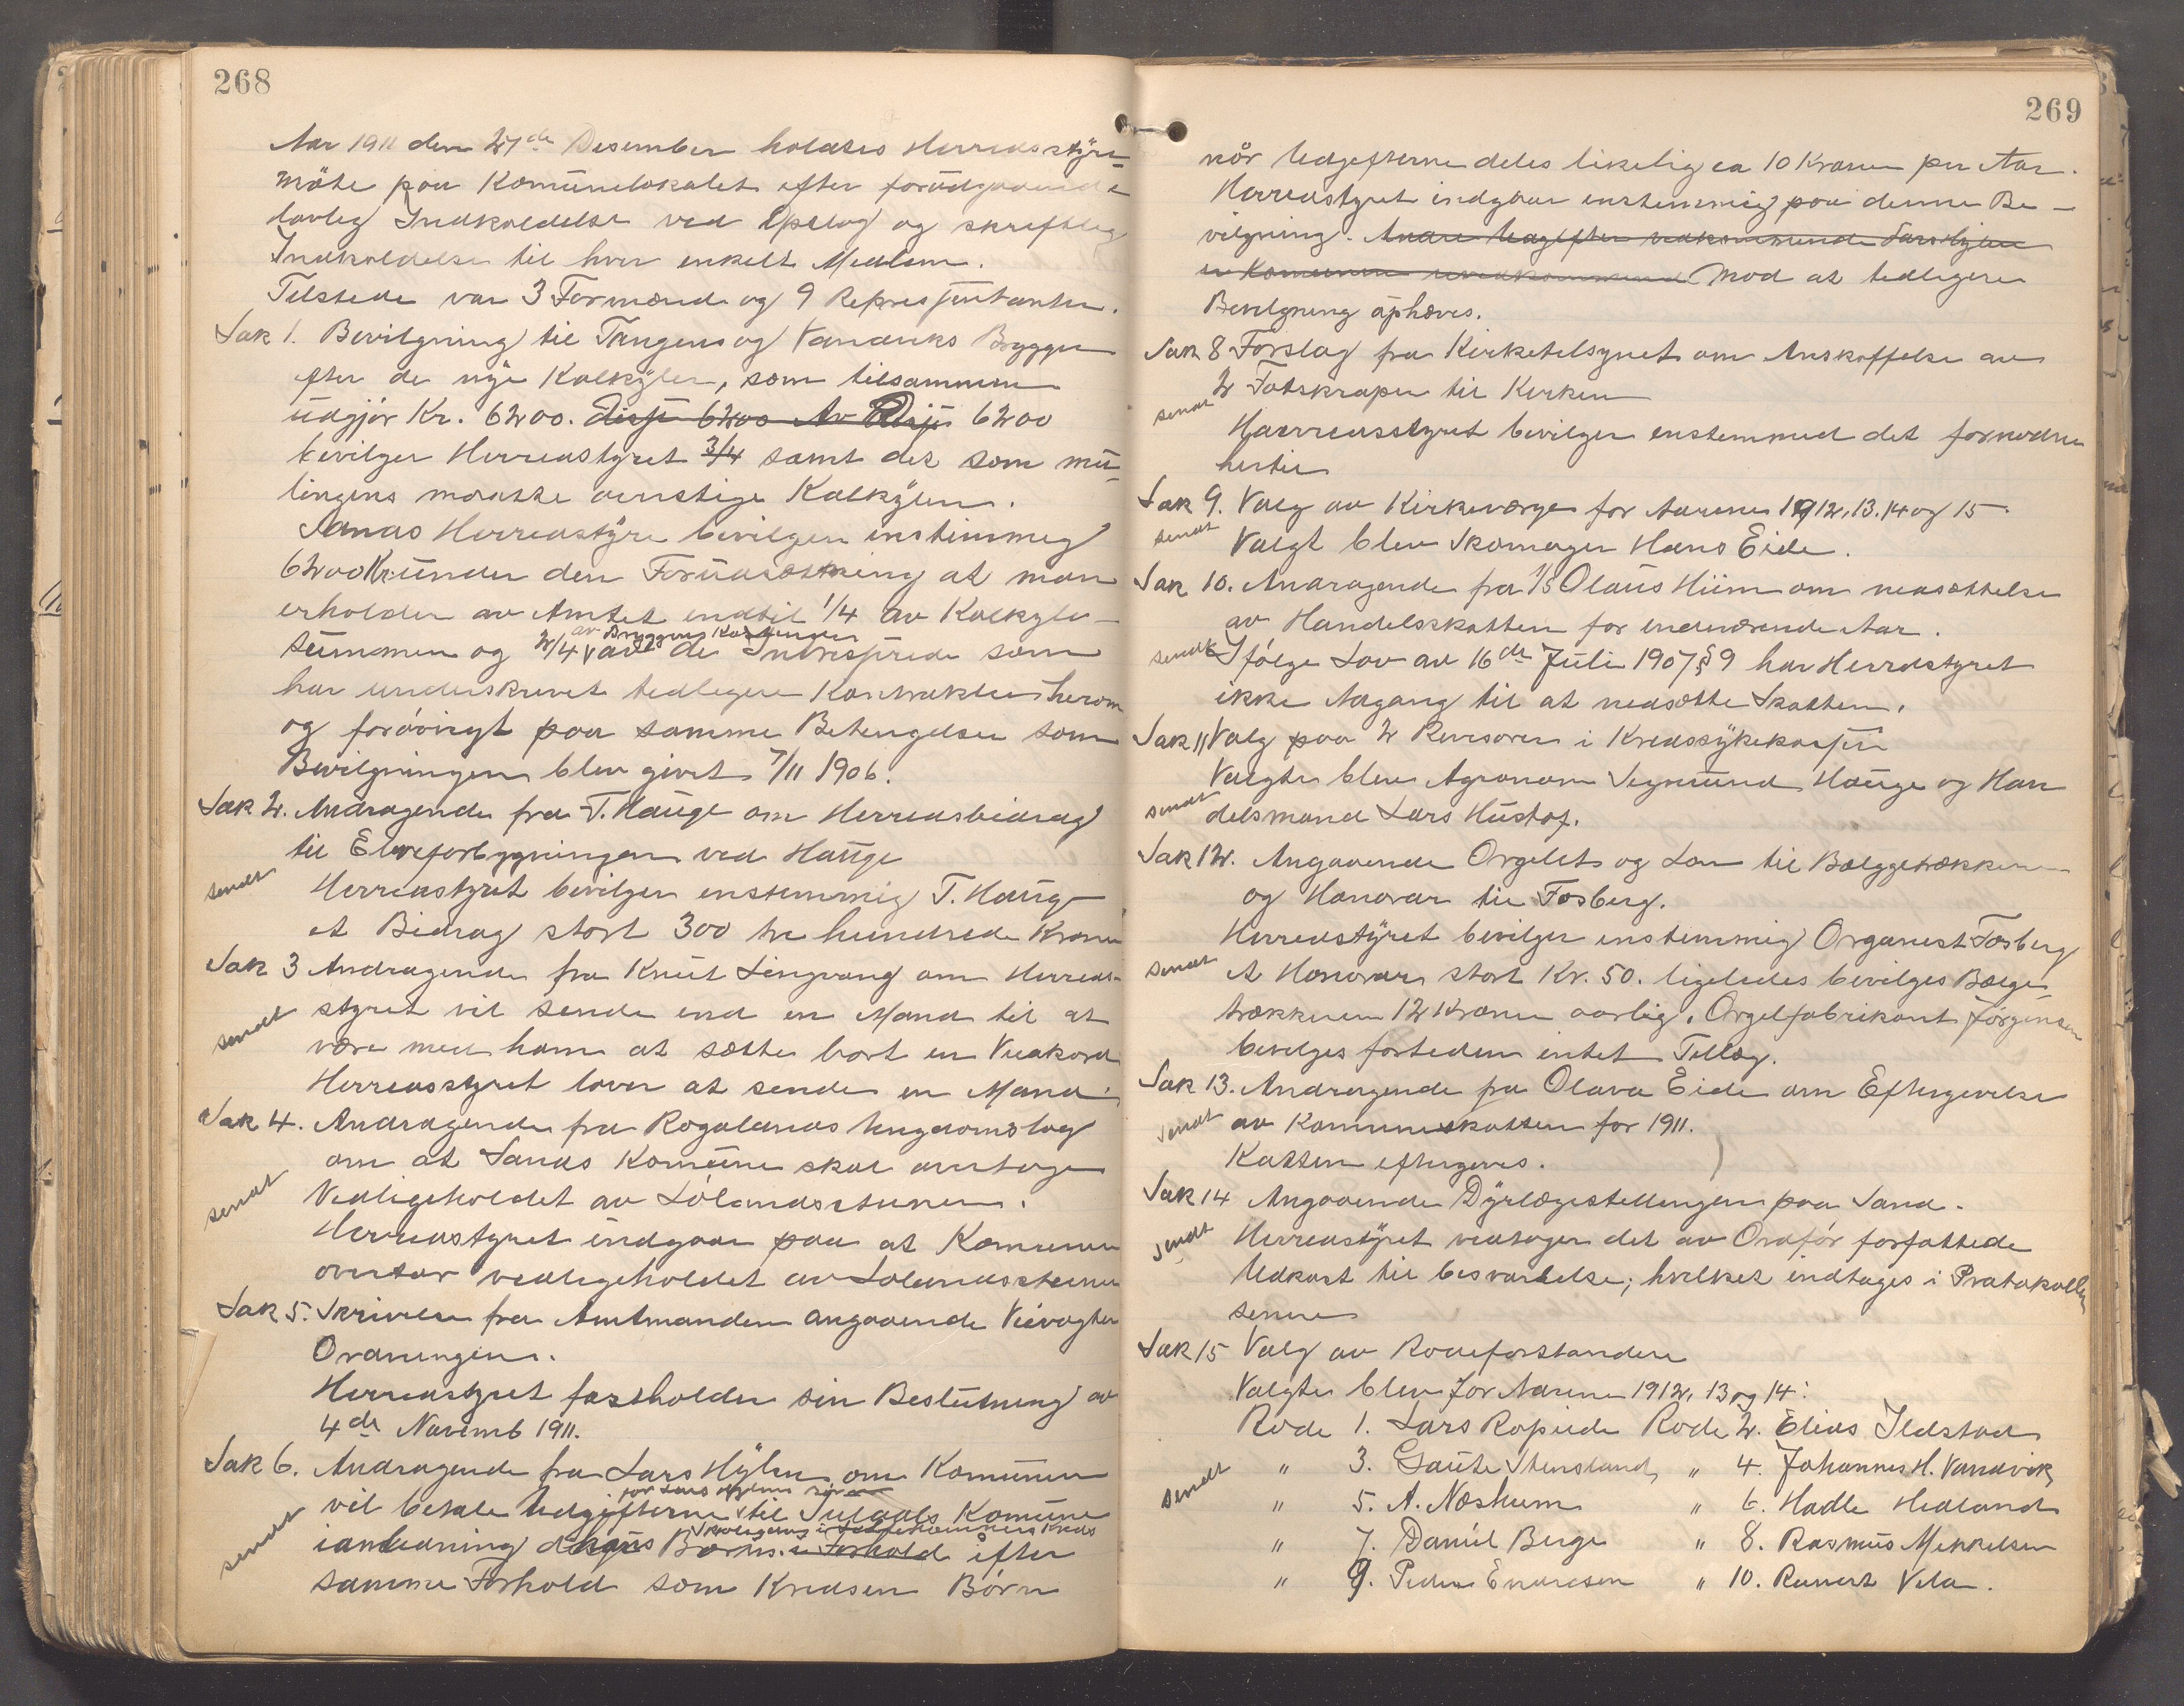 268
Aar 1911 den 27de Desember holdtes Herredsstyre-
möte paa Komunelokalet efter forudgaaende
lovlig Indkaldelse ved Opslag og skriftlig
Indkaldelse til hver enkelt Medlem.
Tilstede var 3 Formænd og 9 Repræsentanter.
Sak 1. Bevilgning til Tangens og Vandviks Brygger
efter de nye Kalkyler, som tilsammen
udgjör Kr. 6200. 6200
bevilger Herredstyret 3/4 samt det som mu-
ligens maatte overstige Kalkylen.
Sands Herredstyre bevilger enstemmig
6200 Kr under den Forudsætning at man
erholder av Amtet indtil 1/4 av Kalkyle-
summen og 2/4 av Bryggens Kostende av de Intresserede som
har underskrevet tidligere Kontrakter herom
og forövrigt paa samme Betingelser som
Bevilgningen blev givet 7/11 1906.
Sak 2. Andragende fra T. Hauge om Herredsbidrag
til Elveforbygningen ved Hauge
sendt
Herredstyret bevilger enstemmig T. Hauge
et Bidrag stort 300 tre hundrede Kroner
Sak 3 Andragende fra Knut Lingvang om Herreds-
styret vil sende end en Mand til at
sendt
være med ham at sætte bort en Veiakord
Herredsstyret lover at sende en Mand.
Sak 4. Andragende fra Rogalands Ungdomslag
om at Sands Komune skal overtage
sendt
Vedligeholdet av Lölandsstunen.
Herredstyret indgaar paa at Komunen
overtar vedligeholdet av Lölandsstunen
Sak 5. Skrivelse fra Amtmanden angaaende Veivogter
Ordningen.
Herredstyret fastholder sin Beslutning av
4de Novemb 1911.
Sak 6. Andragende fra Lars Hylen om Komunen
for Lars Hylens
vil betale Udgifterne til Suldals Komune
Skolegang i Kreds
sendt
i anledning hans Börns i Forhold efter
samme Forhold som Kredsens Börn
269
når Udgifterne deles likelig ca 10 Kroner pr Aar.
Herredstyret indgaar enstemmig paa denne Be-
vilgning. Andre Udgifter vedkommende Lars Hylen
er Komunen uvedkommend Mod at tidligere
Bevilgning ophæves.
Sak 8 Forslag fra Kirketilsynet om Anskaffelse av
2 Fotskraper til Kirken
sendt
Haerredsstyret bevilger enstemmed det fornødne
hertil
Sak 9. Valg av Kirkeværge for Aarene 1912, 13. 14 og 15.
sendt
Valgt blev Skomager Hans Eide.
Sak 10. Andragende fra Olaus Hiim om nedsættelse
av Handelsskatten for indeværende Aar.
sendt
Ifölge Lov av 16de Juli 1907 § 9 har Herredstyret
ikke Adgang til at nedsætte Skatten.
Sak 11 Valg paa 2 Revisorer i Kredssykekassen
Valgte blev Agronom Segmund Hauge og Han
sendt
delsmand Lars Hustof.
Sak 12. Angaaende Orgelet og Lön til Bælggetrækkeren
og Honorar til Fosberg.
Herredstyret bevilger enstemmig Organist Fosberg
sendt
et Honorar stort Kr. 50. ligeledes bevilges Bælge-
trækkeren 12 Kroner aarlig. Orgelfabrikant Jörgensen
bevilges fortiden intet Tillæg.
Sak 13. Andragende fra Olava Eide om Eftergivelse
sendt
av Komuneskatten for 1911.
Katten eftergives.
Sak 14 Angaaende Dyrlægestillingen paa Sand.
sendt
Herredstyret vedtager det av Ordför forfattede
Udkast til besvarelse; hvilket indtages i Protokollen
senere
Sak 15 Valg av Rodeforstandere
Valgte blev for Aarene 1912, 13 og 14:
Rode 1. Lars Ropeide Rode 2. Elias Ildstad
sendt
" 3. Gaute Stensland, " 4. Johannes H. Vandvik,
" 5. A. Næsheim " 6. Hadle Hedland
" 7. Daniel Berge " 8. Rasmus Mekkelsen
" 9. Peder Endresen " 10. Reinert Vela.